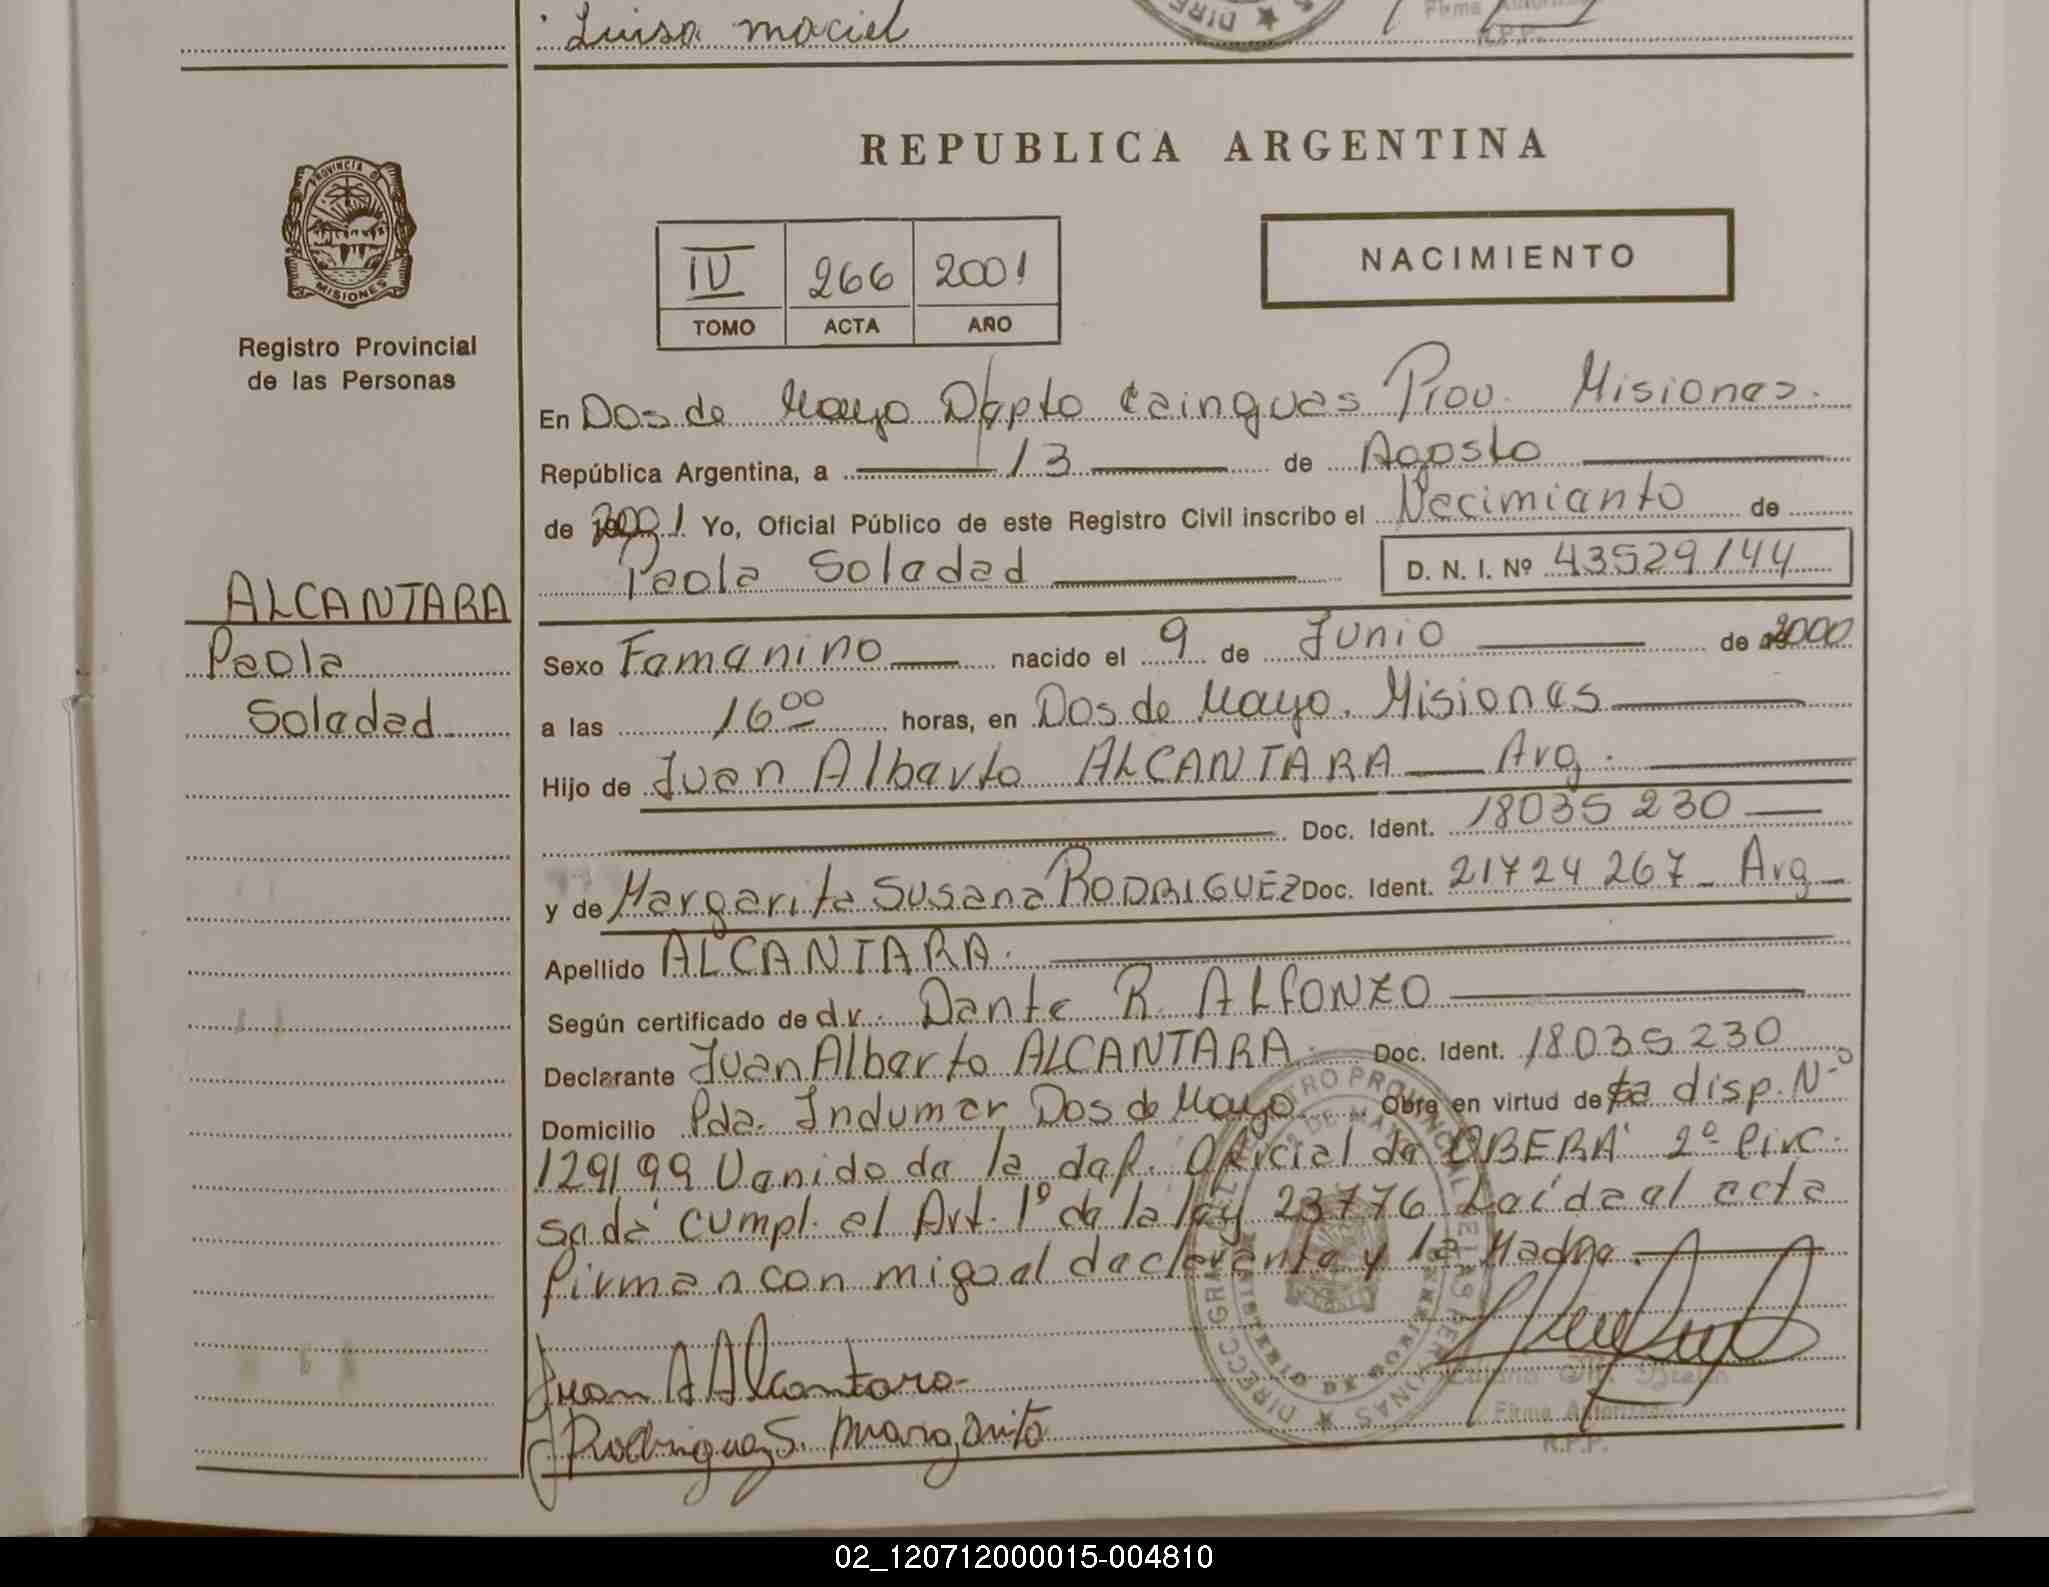 Luisa maciel
Firma Autorizada
R.P.P.
REPUBLICA ARGENTINA
PROVINCIA DE
MISIONES
Registro Provincial
de las Personas
IV 266 2001
TOMO ACTA AÑO
NACIMIENTO
En Dos de Mayo Dpto Cainguas Prov. Misiones.
República Argentina, a 13 de Agosto
de 2001 Yo, Oficial Público de este Registro Civil inscribo el Nacimiento de
Paola Soledad D. N. I. Nº 43529144
ALCANTARA
Paola
Soledad
Sexo Femenino nacido el 9 de Junio de 2000
a las 16 00 horas, en Dos de Mayo. Misiones
Hijo de Juan Alberto ALCANTARA Arg.
Doc. Ident. 18035230
y de Margarita Susana RODRIGUEZ Doc. Ident. 21724267 - Arg
Apellido ALCANTARA.
Según certificado de dr. Dante R. ALFONZO
Declarante Juan Alberto ALCANTARA. Doc. Ident. 18035230
Domicilio Pda. Indumar Dos de Mayo. Obre en virtud de la disp. Nº
129/99 Venido de la del. Oficial de OBERA 2º Circ.
se dá cumpl. al Art. 1º de la ley 23776 Leída el acta
firman con migo el declarante y la Madre.
Juan A Alcantara
Rodriguez S. Margarita
Firma Autorizada
R.P.P.
02_120712000015-004810